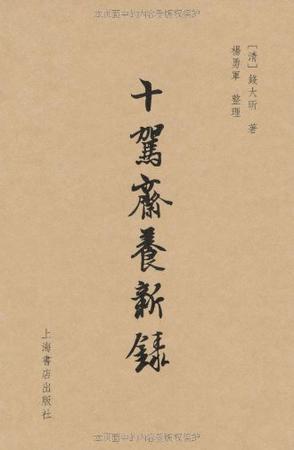 本页面中的内容受版权保护
[清] 錢大昕 著
楊勇軍 整理
十駕齋養新錄
上海書店出版社
本页面中的内容受版权保护